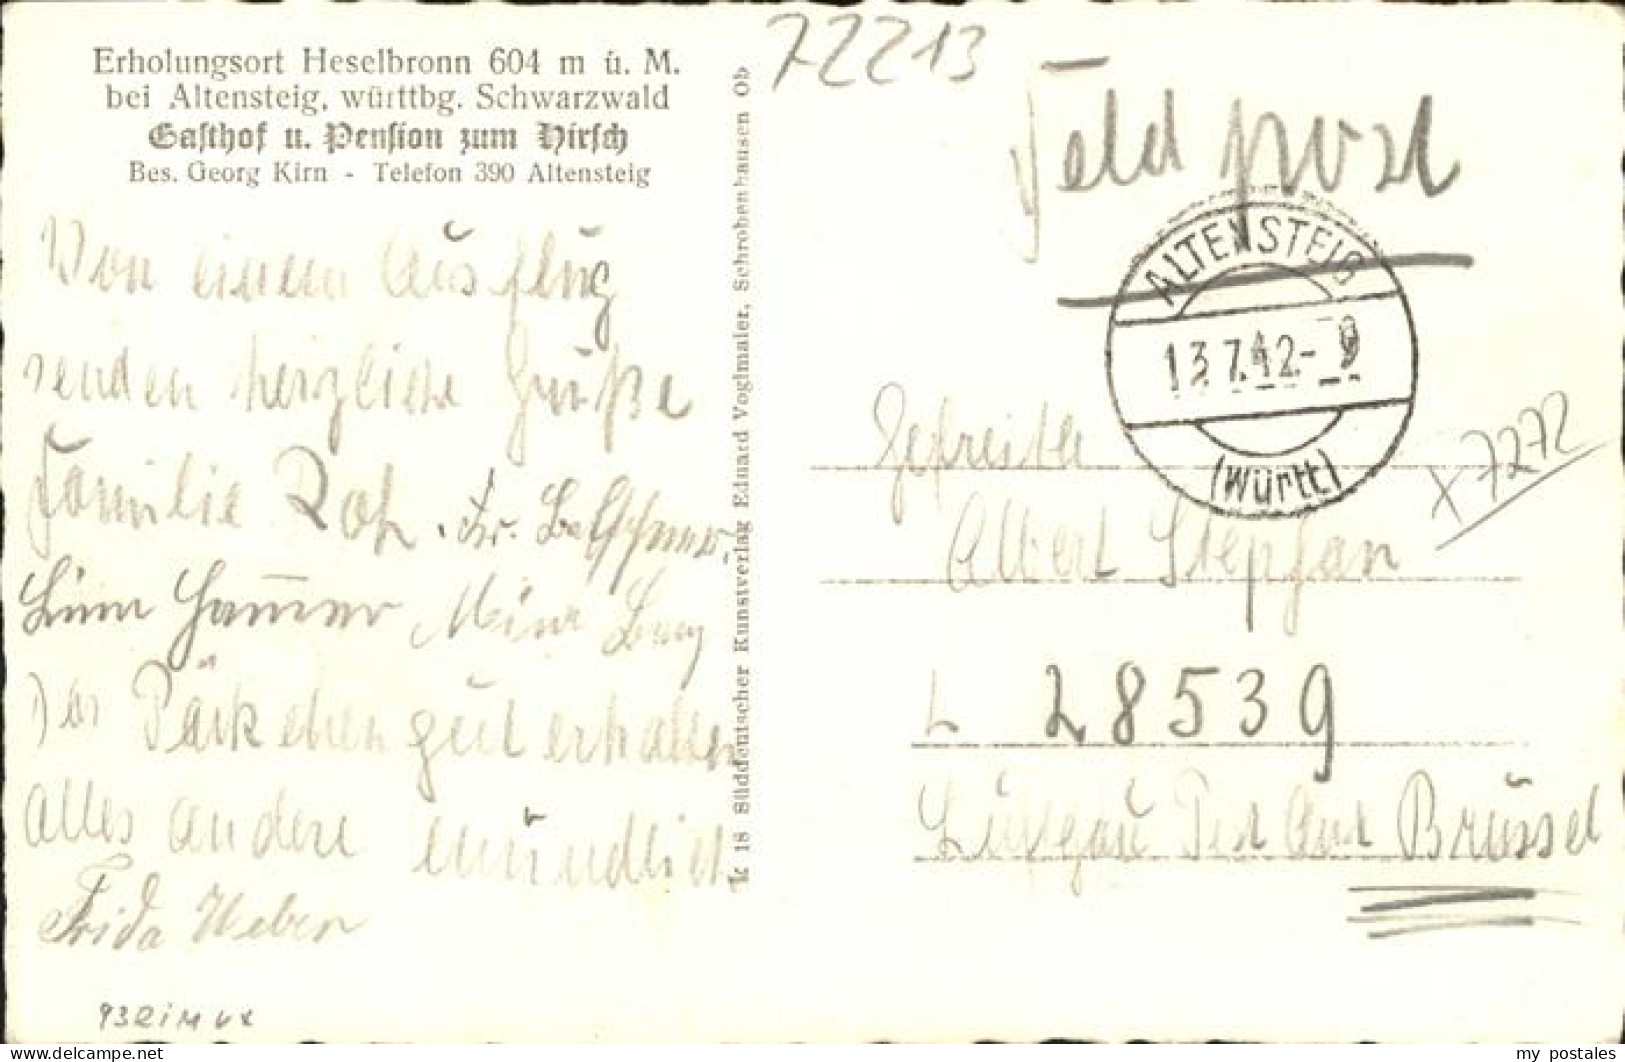 Erholungsort Heselbronn 604 m ü. M.
bei Altensteig, württbg. Schwarzwald
Gasthof u. Pension zum Hirsch
Bes. Georg Kirn - Telefon 390 Altensteig
Von einem Ausflug
senden herzliche Grüße
Familie Roh. Fr.
Hammer Mina
Päck eben gut erhalten
alles andere mündlich
Frida Weber
k 18 Süddeutscher Kunstverlag Eduard Voglmaier, Schrobenhausen Ob
72213
Feldpost
ALTENSTEIG
13.7.42.-9
(Württ)
x 7272
Gefreiter
Albert Stephan
L 28539
Luftgau Post Amt Brüssel
my postales